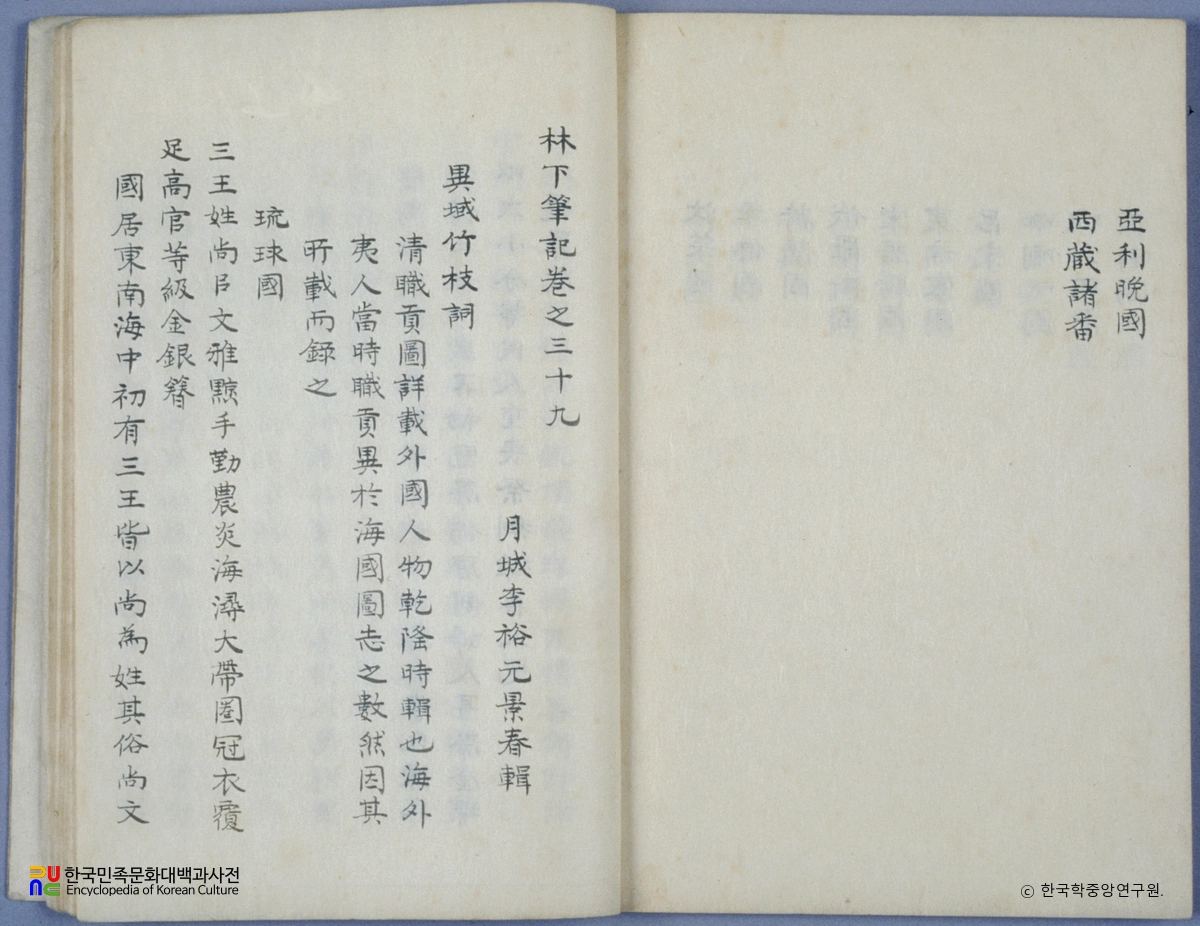 亞利晚國
西藏諸番
林下筆記卷之三十九
月城李裕元景春輯
異域竹枝詞
清職貢圖詳載外國人物乾隆時輯也海外
夷人當時職貢異於海國圖志之數然因其
所載而錄之
琉球國
三王姓尚㠯文雅黥手勤農炎海潯大帶圈冠衣覆
足高官等級金銀簪
國居東南海中初有三王皆以尚為姓其俗尚文
한국민족문화대백과사전
Encyclopedia of Korean Culture
ⓒ 한국학중앙연구원.